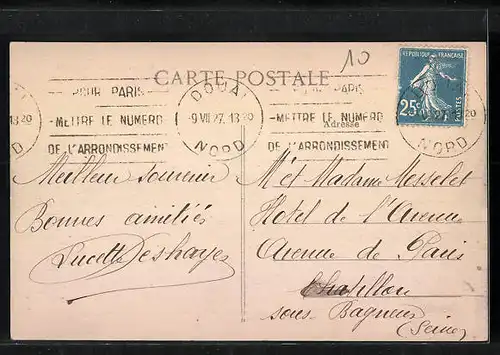 10
CARTE POSTALE
REPUBLIQUE FRANÇAISE
25c
POSTES
POUR PARIS
METTRE LE NUMERO
DE L'ARRONDISSEMENT
DOUAI
9 VII 27. 13 20
NORD
PARIS
METTRE LE NUMERO
DE L'ARRONDISSEMENT
13 20
NORD
Adresse
Meilleur souvenir
Bonnes amitiés
Lucette Deshayes
Mr et Madame Messelet
Hotel de l'Avenue
Avenue de Paris
Chatillon
sous Bagneux
(Seine)